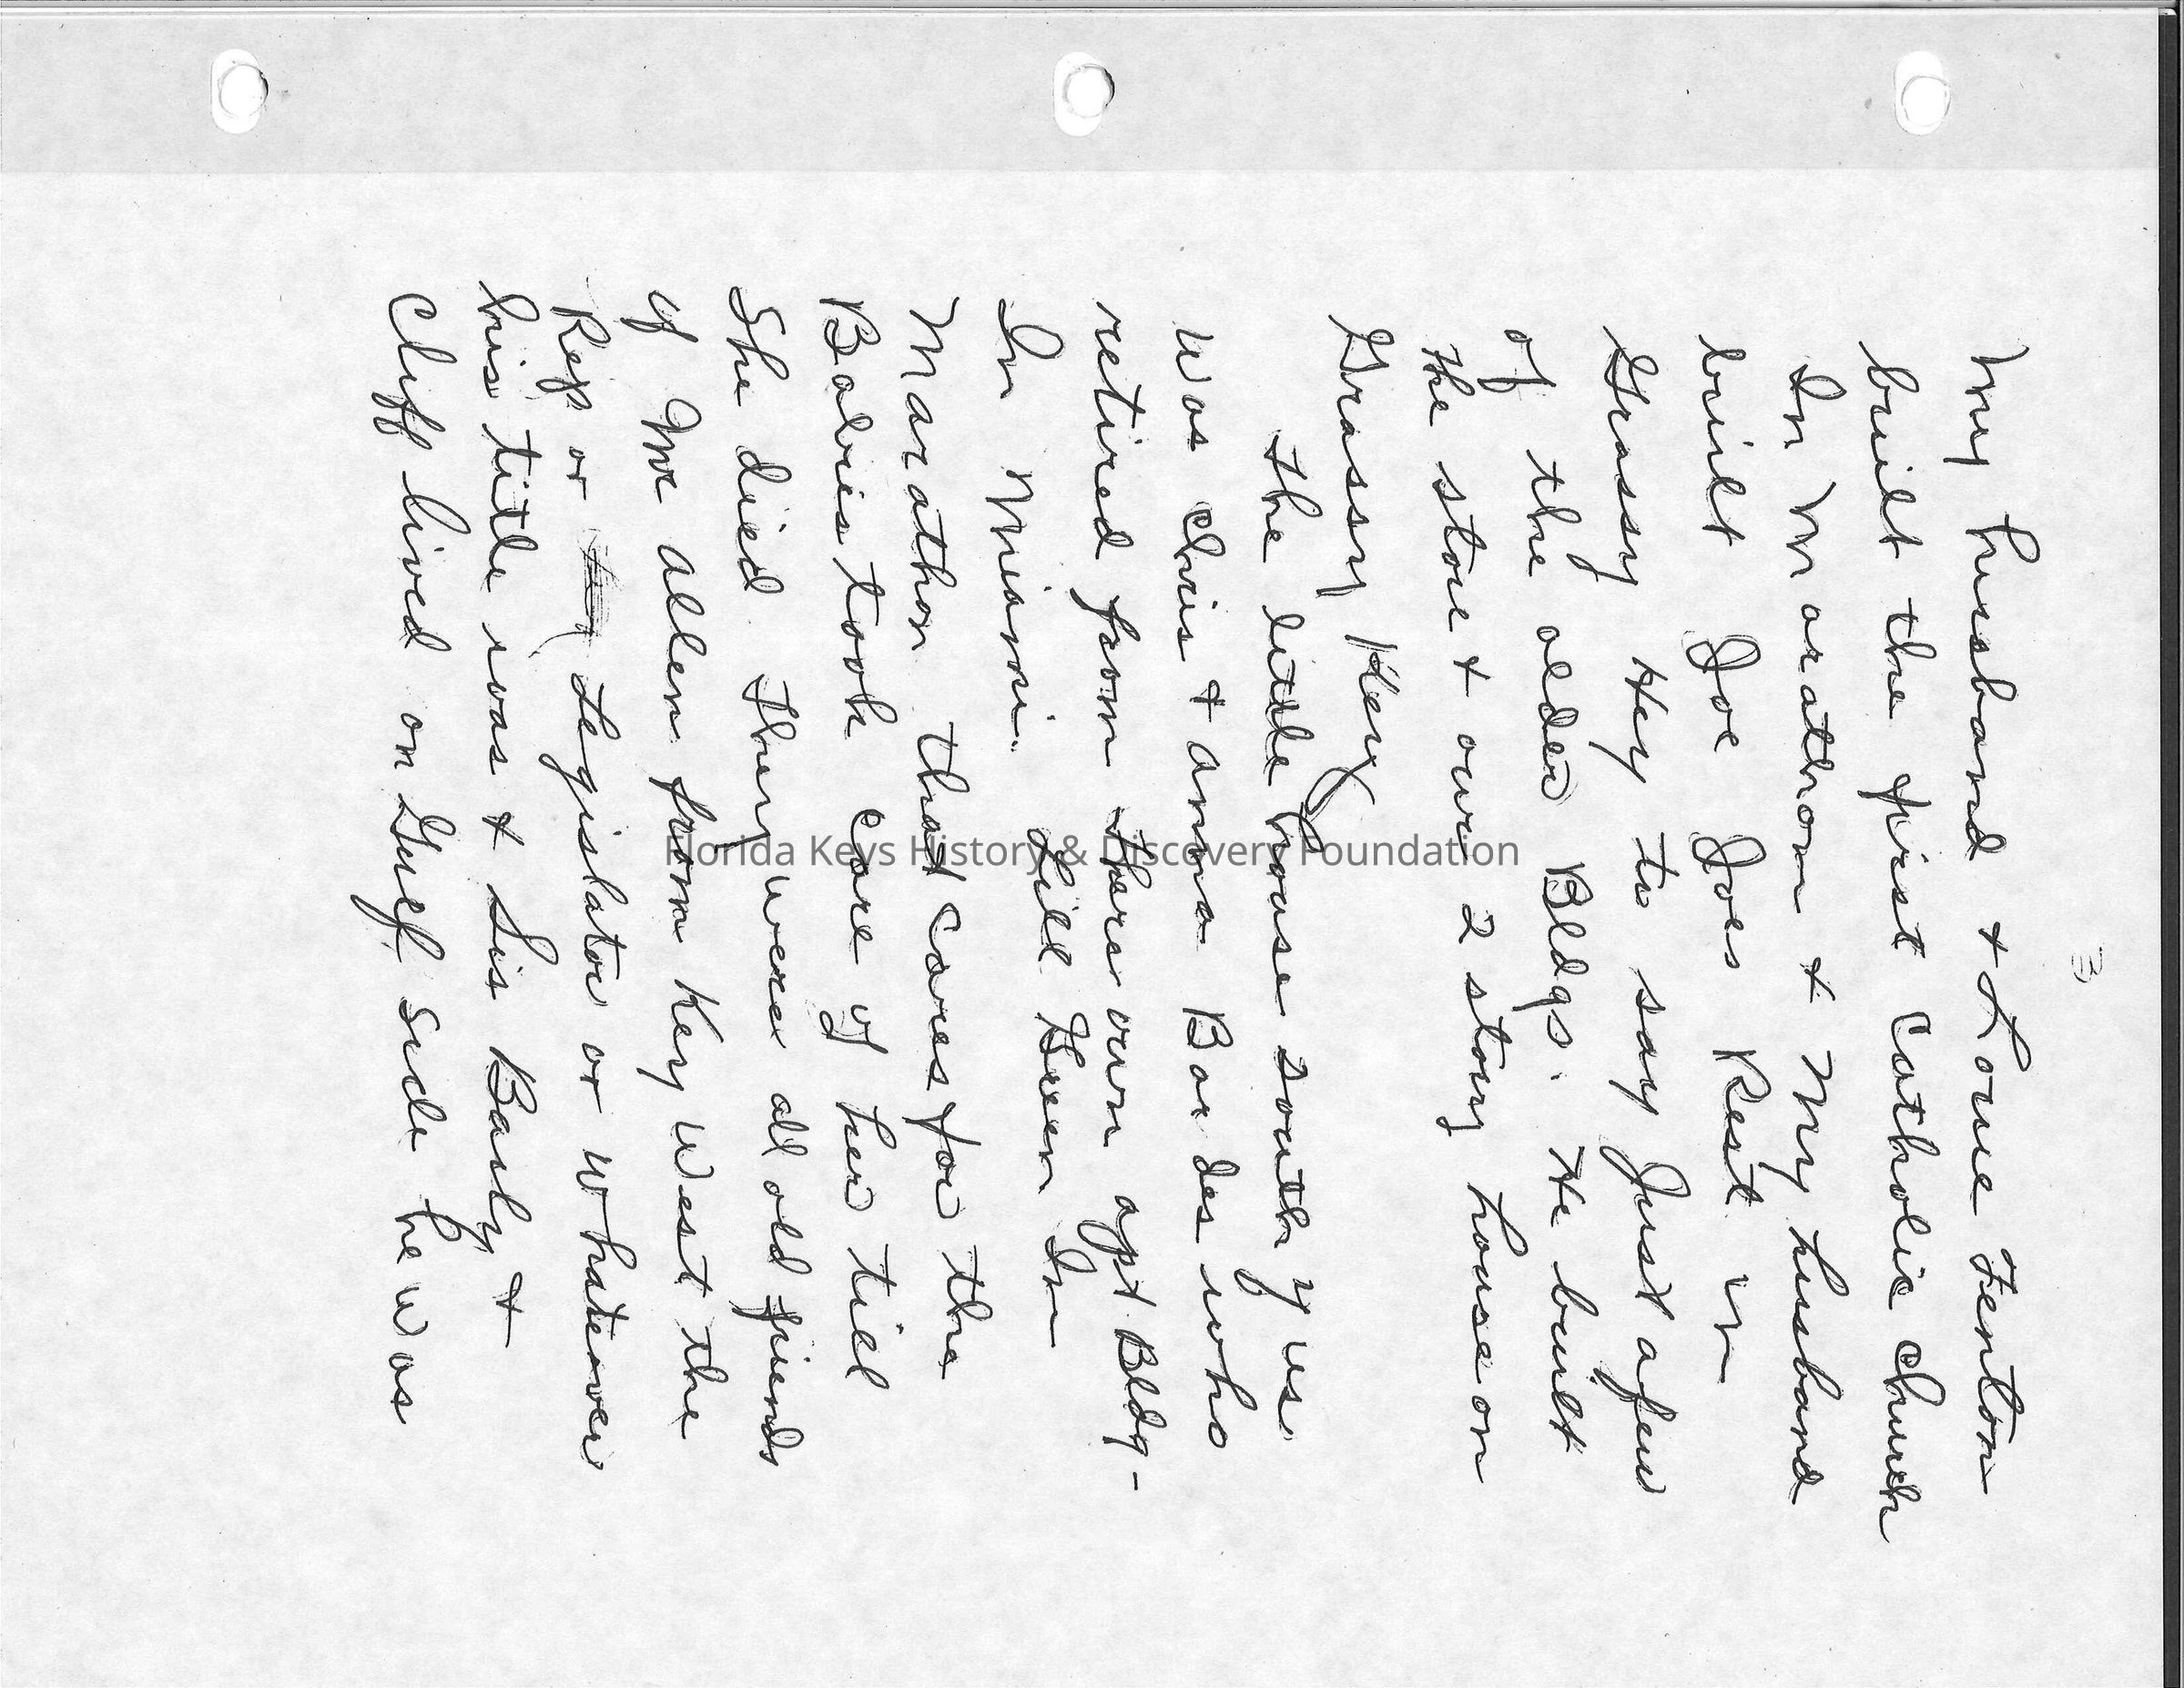 3
My husband & Louie Fenton
built the first Catholic Church
In Marathon & My husband
built Joe Joes Rest in
Grassy Key to say Just a few
of the older Bldgs. He built
the store & our 2 story house on
Grassy Key
The little house south of us
was Chris & Anna Bordes who
retired from there own apt Bldg-
In Miami. Lill Green In
Marathon that cares for the
Babies took care of her till
She died. They were all old friends
of Mr Allen from Key West the
Rep or Legislator or whatever
his title was & Sis Basly &
Cliff lived on Gulf side he was
Florida Keys History & Discovery Foundation